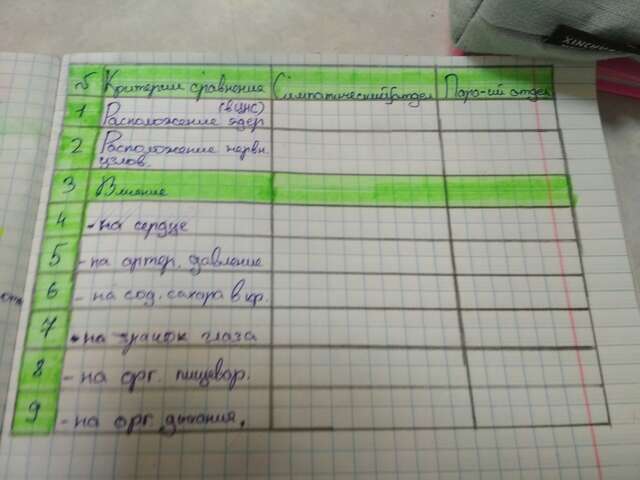 № Критерии сравнения Симпатический отдел Пара-ий отдел
1 Расположение ядер (в ЦНС)
2 Расположение нервн.
узлов.
3 Влияние
4 - на сердце
5 - на артер. давление
6 - на сод. сахара в кр.
7 - на зрачок глаза
8 - на орг. пищевар.
9 - на орг. дыхания.